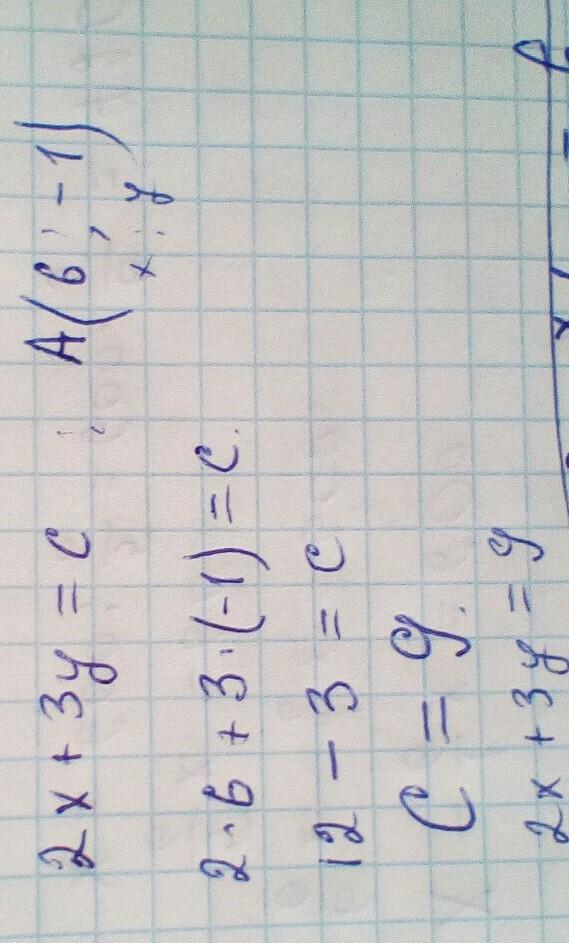 2x + 3y = c ; A(6 ; -1)
x ; y
2·6 + 3·(-1) = c.
12 - 3 = c
c = 9.
2x + 3y = 9